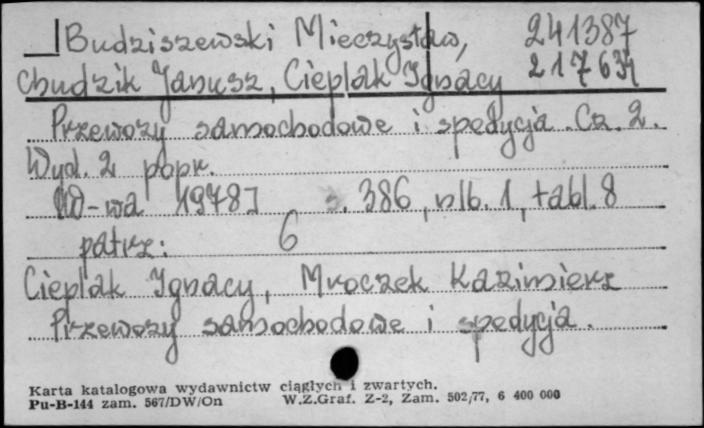 Budziszewski Mieczysław, 241387
Chudzik Janusz, Cieplak Ignacy 217634
Przewozy samochodowe i spedycja. Cz. 2.
Wyd. 2 popr.
W-wa 1978] s. 386, nlb. 1, tabl. 8
patrz: 6
Cieplak Ignacy, Mroczek Kazimierz
Przewozy samochodowe i spedycja.
Karta katalogowa wydawnictw ciągłych i zwartych.
Pu-B-144 zam. 567/DW/On W.Z.Graf. Z-2, Zam. 502/77, 6 400 000